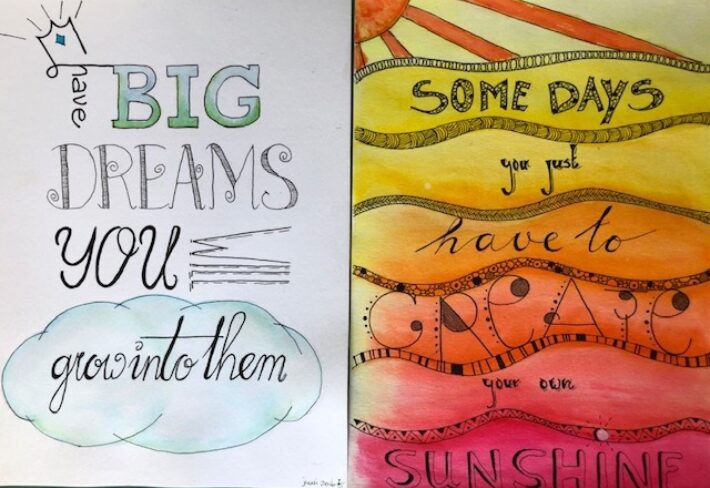 have BIG
DREAMS
YOU WILL
grow into them
SOME DAYS
you just
have to
CREATE
your own
SUNSHINE